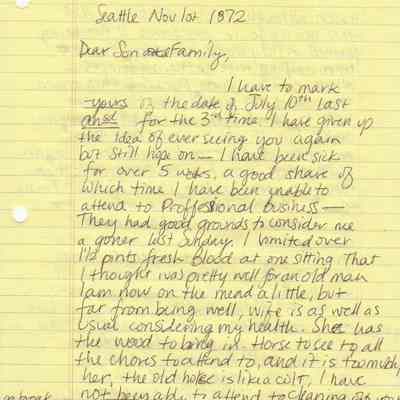 Seattle Nov 1st 1872
Dear Son & Family,
I have to mark
yours of the date of July 10th last
ansd for the 3rd time. I have given up
the idea of ever seeing you again
but still hope on — I have been sick
for over 5 weeks, a good share of
which time I have been unable to
attend to Proffessional business —
They had good grounds to consider me
a goner last Sunday. I vomited over
1 1/2 pints fresh Blood at one sitting. That
I thought was pretty well for an old man
I am now on the mend a little, but
far from being well, wife is as well as
usual considering my health. She has
the wood to bring in. Horse to see to, all
the chores to attend to, and it is too much
her, the old horse is like a colt, I have
not been able to attend to cleaning
on break